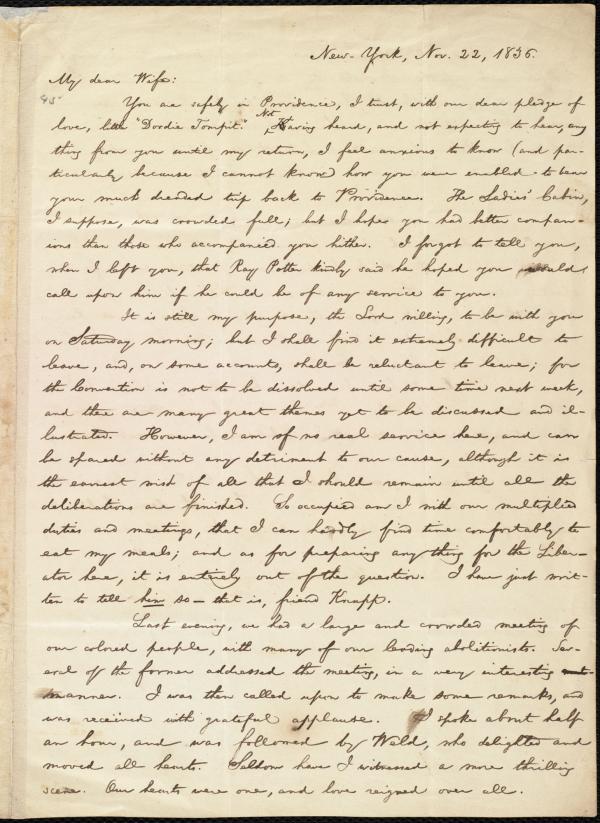 New-York, Nov. 22, 1836.
My dear Wife:
45
You are safely in Providence, I trust, with our dear pledge of
love, little "Dordie Tompit." Not Having heard, and not expecting to hear, any
thing from you until my return, I feel anxious to know (and par-
ticularly because I cannot know) how you were enabled to bear
your much dreaded trip back to Providence. The Ladies' Cabin,
I suppose, was crowded full; but I hope you had better compan-
ions than those who accompanied you hither. I forgot to tell you,
when I left you, that Ray Potter kindly said he hoped you would
call upon him if he could be of any service to you.
It is still my purpose, the Lord willing, to be with you
on Saturday morning; but I shall find it extremely difficult to
leave, and, on some accounts, shall be reluctant to leave; for
the Convention is not to be dissolved until some time next week,
and there are many great themes yet to be discussed and il-
lustrated. However, I am of no real service here, and can
be spared without any detriment to our cause, although it is
the earnest wish of all that I should remain until all the
deliberations are finished. So occupied am I with our multiplied
duties and meetings, that I can hardly find time comfortably to
eat my meals; and as for preparing any thing for the Liber-
ator here, it is entirely out of the question. I have just writ-
ten to tell him so — that is, friend Knapp.
Last evening, we had a large and crowded meeting of
our colored people, with many of our leading abolitionists. Sev-
eral of the former addressed the meeting, in a very interesting
manner. I was then called upon to make some remarks, and
was received with grateful applause. I spoke about half
an hour, and was followed by Weld, who delighted and
moved all hearts. Seldom have I witnessed a more thrilling
scene. Our hearts were one, and love reigned over all.